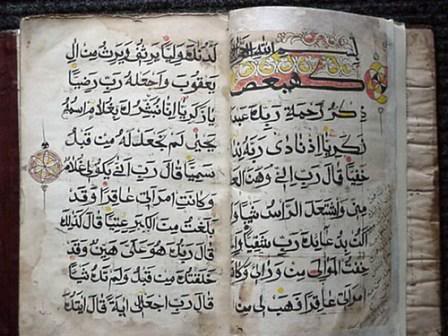 بسم الله الرحمن الرحيم
كهيعص
ذكر رحمة ربك عبده
زكريا اذ نادى ربه ندا
خفيا قال رب انى وهن العظم
منى واشتعل الراس شيبا و
اكن بدعائك رب شقيا وا
خفت الموالى من وراى وكانت
امراتى عاقرا فهب لى من
لدنك وليا يرثنى ويرث من ال
يعقوب واجعله رب رضيا
يازكريا انا نبشرك بغلام اسمه
يحيى لم نجعل له من قبل
سميا قال رب انى يكون لى غلام
وكانت امراتى عاقرا وقد
بلغت من الكبر عتيا قال كذلك
قال ربك هو على هين وقد
خلقتك من قبل ولم تك شيا
قال رب اجعل لى اية قال ايتك